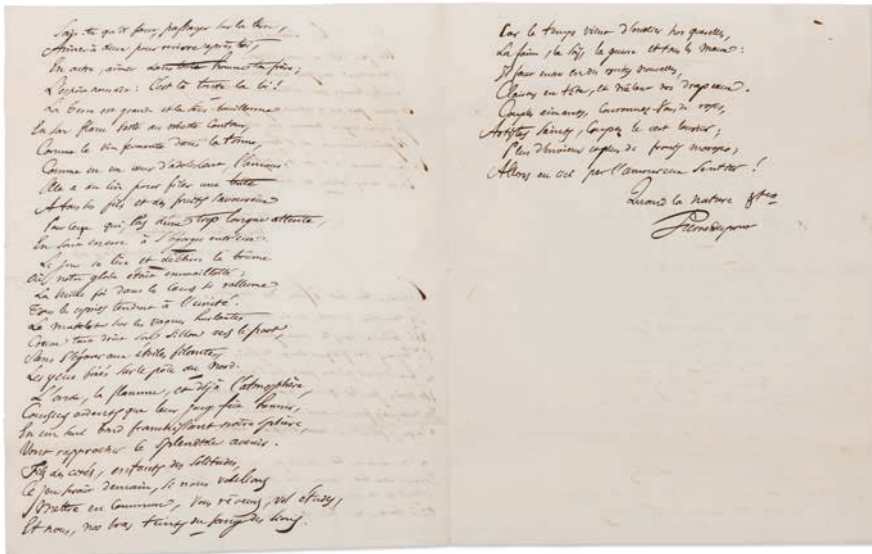 faut, passager sur la terre,
Aimer à deux pour après toi,
En outre, aimer
C'est là toute la loi !
La terre est grande et
En son flanc
Comme le vin fermente dans la tonne,
Comme en un cœur d'adolescent, l'amour
Elle a du lin pour filer une
A tous les fils et des fruits savoureux
Pour ceux qui, las d'une trop longue attente,
En sont encore à s'égorger entr'eux.
Le jour se lève et déchire la brume
Où notre globe était emmaillotté ;
La vieille foi dans les cœurs se rallume
Tous les esprits tendent à l'unité !
Le matelot sur les vagues hurlantes
Creuse tout droit son sillon vers le port,
Sans s'égarer aux étoiles filantes,
Les yeux fixés sur le pôle du Nord.
L'onde, la flamme, et déjà l'atmosphère,
Coursiers ardents que leur joug fait hennir,
En un seul bond franchissant notre sphère,
Vont rapprocher le splendide avenir.
Fils des cités, enfants des solitudes,
Ce jour demain, si nous voulons
Mettre en commun, vous rêveurs, vos études,
Et nous, nos bras teints du sang des lions.
Car le temps vient d'oublier nos querelles,
La faim, la soif, la guerre et tous les maux :
Il faut en des routes nouvelles,
Clairons en tête, et nos drapeaux.
Couples aimants, couronnez-vous de roses,
Artistes saints, coupez le vert laurier ;
Plus d'envieux, de fronts moroses ;
Allons au ciel par l'amoureux sentier !
Quand la nature &tc
Pierre Dupont